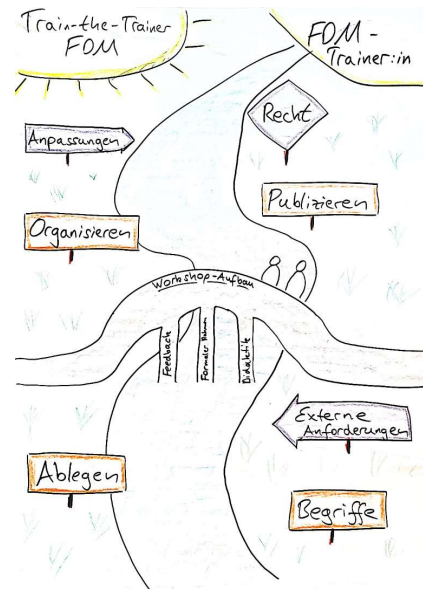 Train-the-Trainer
FDM
FDM-
Trainer:in
Recht
Anpassungen
Publizieren
Organisieren
Workshop-Aufbau
Feedback
Formaler Rahmen
Didaktik
Externe
Anforderungen
Ablegen
Begriffe